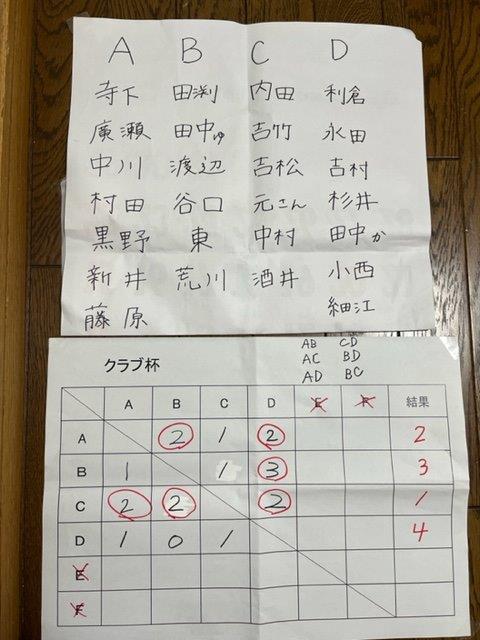 A B C D
寺下 田渕 内田 利倉
廣瀬 田中ゆ 吉竹 永田
中川 渡辺 吉松 吉村
村田 谷口 元さん 杉井
黒野 東 中村 田中か
新井 荒川 酒井 小西
藤原 細江
AB CD
AC BD
AD BC
クラブ杯
A B C D E F 結果
A 2 1 2 2
B 1 1 3 3
C 2 2 2 1
D 1 0 1 4
E
F